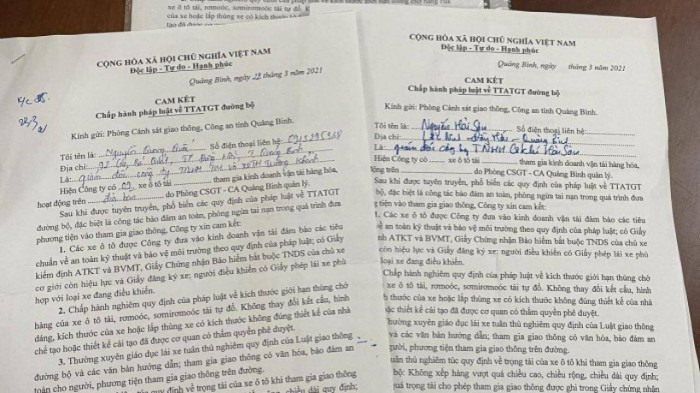 của xe hoặc lắp thùng xe có kích thước
CỘNG HÒA XÃ HỘI CHỦ NGHĨA VIỆT NAM
Độc lập - Tự do - Hạnh phúc
Quảng Bình, ngày 29 tháng 3 năm 2021
CAM KẾT
Chấp hành pháp luật về TTATGT đường bộ
Kính gửi: Phòng Cảnh sát giao thông, Công an tỉnh Quảng Bình.
Tôi tên là: Nguyễn Quang Số điện thoại liên hệ:
Địa chỉ:
Là: giám đốc công ty TNHH
Hiện Công ty có 09 xe ô tô tải tham gia kinh doanh vận tải hàng hóa,
hoạt động trên địa bàn do Phòng CSGT - CA Quảng Bình quản lý.
Sau khi được tuyên truyền, phổ biến các quy định của pháp luật về TTATGT
đường bộ, đặc biệt là công tác bảo đảm an toàn, phòng ngừa tai nạn trong quá trình đưa
phương tiện vào tham gia giao thông, Công ty xin cam kết:
1. Các xe ô tô được Công ty đưa vào kinh doanh vận tải đảm bảo các tiêu
chuẩn về an toàn kỹ thuật và bảo vệ môi trường theo quy định của pháp luật; có Giấy
kiểm định ATKT và BVMT, Giấy Chứng nhận Bảo hiểm bắt buộc TNDS của chủ xe
cơ giới còn hiệu lực và Giấy đăng ký xe; người điều khiển có Giấy phép lái xe phù
hợp với loại xe đang điều khiển.
2. Chấp hành nghiêm quy định của pháp luật về kích thước giới hạn thùng chở
hàng của xe ô tô tải, rơmoóc, sơmirơmoóc tải tự đổ. Không thay đổi kết cấu, hình
dáng, kích thước của xe hoặc lắp thùng xe có kích thước không đúng thiết kế của nhà
chế tạo hoặc thiết kế cải tạo đã được cơ quan có thẩm quyền phê duyệt.
3. Thường xuyên giáo dục lái xe tuân thủ nghiêm quy định của Luật giao thông
đường bộ và các văn bản hướng dẫn; tham gia giao thông có văn hóa, bảo đảm an
toàn cho người, phương tiện tham gia giao thông trên đường.
quy định về trọng tải của xe ô tô khi tham gia giao thông
CỘNG HÒA XÃ HỘI CHỦ NGHĨA VIỆT NAM
Độc lập - Tự do - Hạnh phúc
Quảng Bình, ngày tháng 3 năm 2021
CAM KẾT
Chấp hành pháp luật về TTATGT đường bộ
Kính gửi: Phòng Cảnh sát giao thông, Công an tỉnh Quảng Bình.
Tôi tên là: Nguyễn Hải Số điện thoại liên hệ:
Địa chỉ: Quảng Bình
Là: giám đốc công ty TNHH
Hiện Công ty có xe ô tô tải tham gia kinh doanh vận tải hàng hóa,
động trên do Phòng CSGT - CA Quảng Bình quản lý.
Sau khi được tuyên truyền, phổ biến các quy định của pháp luật về TTATGT
bộ, đặc biệt là công tác bảo đảm an toàn, phòng ngừa tai nạn trong quá trình đưa
tiện vào tham gia giao thông, Công ty xin cam kết:
1. Các xe ô tô được Công ty đưa vào kinh doanh vận tải đảm bảo các tiêu
về an toàn kỹ thuật và bảo vệ môi trường theo quy định của pháp luật; có Giấy
ATKT và BVMT, Giấy Chứng nhận Bảo hiểm bắt buộc TNDS của chủ xe
còn hiệu lực và Giấy đăng ký xe; người điều khiển có Giấy phép lái xe phù
loại xe đang điều khiển.
Chấp hành nghiêm quy định của pháp luật về kích thước giới hạn thùng chở
xe ô tô tải, rơmoóc, sơmirơmoóc tải tự đổ. Không thay đổi kết cấu, hình
thước của xe hoặc lắp thùng xe có kích thước không đúng thiết kế của nhà
thiết kế cải tạo đã được cơ quan có thẩm quyền phê duyệt.
Thường xuyên giáo dục lái xe tuân thủ nghiêm quy định của Luật giao thông
và các văn bản hướng dẫn; tham gia giao thông có văn hóa, bảo đảm an
phương tiện tham gia giao thông trên đường.
tuân thủ nghiêm túc quy định về trọng tải của xe ô tô khi tham gia giao thông
bộ: Không xếp hàng vượt quá chiều cao, chiều rộng, chiều dài quy định;
quá trọng tải cho phép tham gia giao thông được ghi trong Giấy chứng nhận